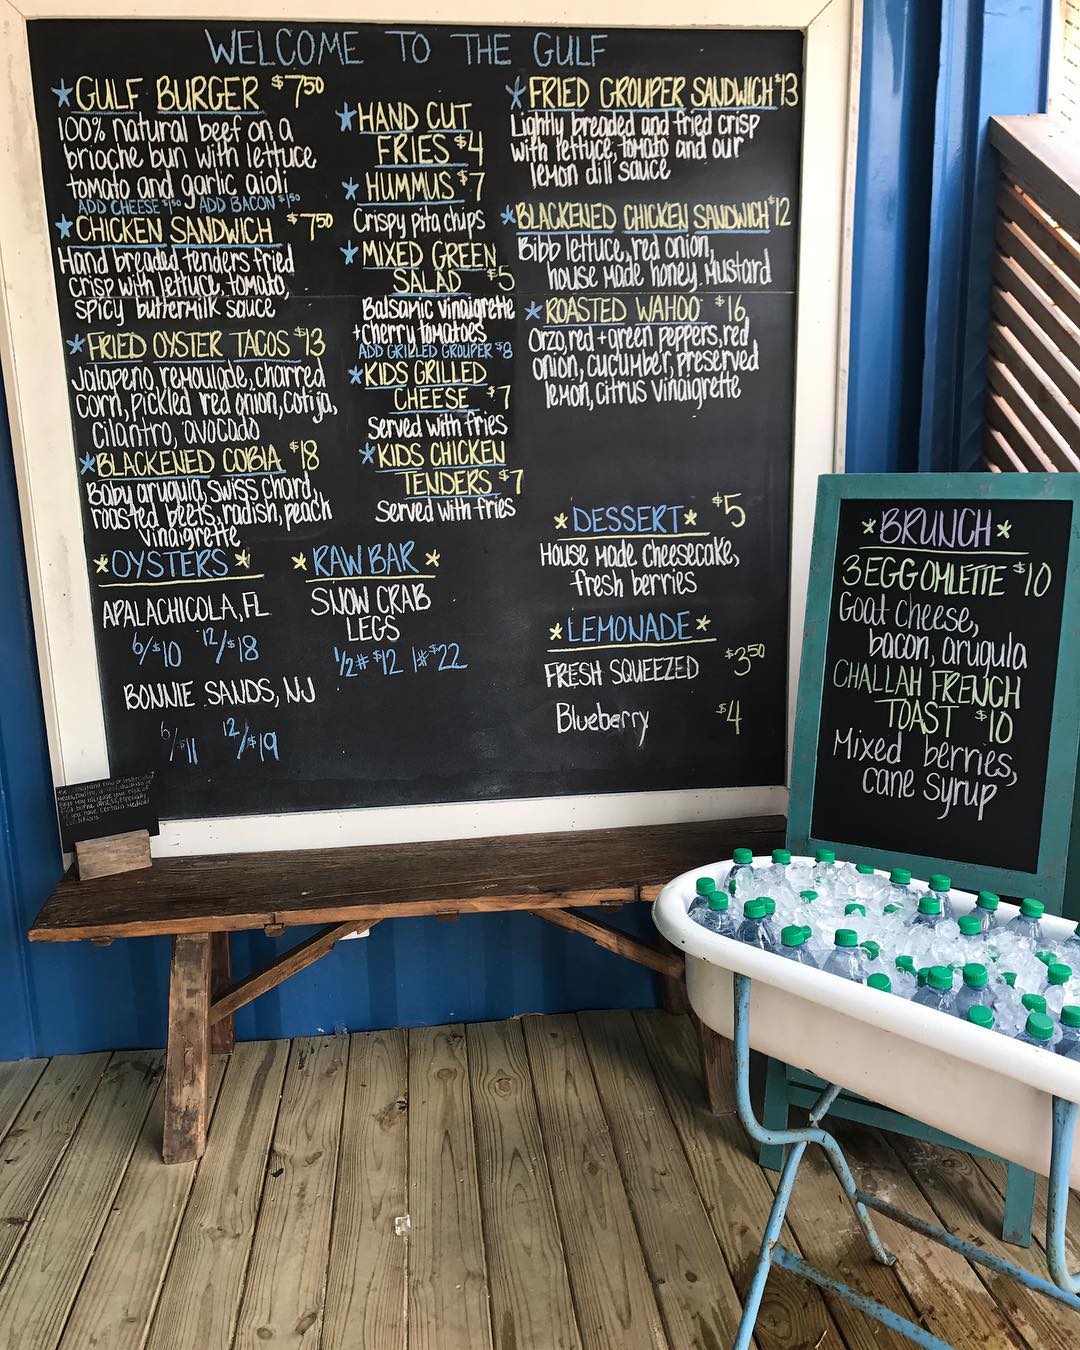 WELCOME TO THE GULF
*GULF BURGER $7.50
100% natural beef on a
brioche bun with lettuce
tomato and garlic aioli
ADD CHEESE $1.50 ADD BACON $1.50
*CHICKEN SANDWICH $7.50
Hand breaded tenders fried
crisp with lettuce, tomato,
spicy buttermilk sauce
*FRIED OYSTER TACOS $13
Jalapeño, remoulade, charred
corn, pickled red onion, cotija,
cilantro, avocado
*BLACKENED COBIA $18
Baby arugula, swiss chard,
roasted beets, radish, peach
vinaigrette
*OYSTERS*
APALACHICOLA, FL
6/$10 12/$18
BONNIE SANDS, NJ
6/$11 12/$19
*HAND CUT
FRIES $4
*HUMMUS $7
Crispy pita chips
*MIXED GREEN
SALAD $5
Balsamic vinaigrette
+cherry tomatoes
ADD GRILLED GROUPER $8
*KIDS GRILLED
CHEESE $7
Served with fries
*KIDS CHICKEN
TENDERS $7
Served with fries
*RAW BAR*
SNOW CRAB
LEGS
1/2# $12 1# $22
*FRIED GROUPER SANDWICH $13
Lightly breaded and fried crisp
with lettuce, tomato and our
lemon dill sauce
*BLACKENED CHICKEN SANDWICH $12
Bibb lettuce, red onion,
house made honey mustard
*ROASTED WAHOO $16
Orzo, red + green peppers, red
onion, cucumber, preserved
lemon, citrus vinaigrette
*DESSERT* $5
House made cheesecake,
fresh berries
*LEMONADE*
FRESH SQUEEZED $3.50
Blueberry $4
*BRUNCH*
3 EGG OMLETTE $10
Goat cheese,
bacon, arugula
CHALLAH FRENCH
TOAST $10
Mixed berries,
cane syrup